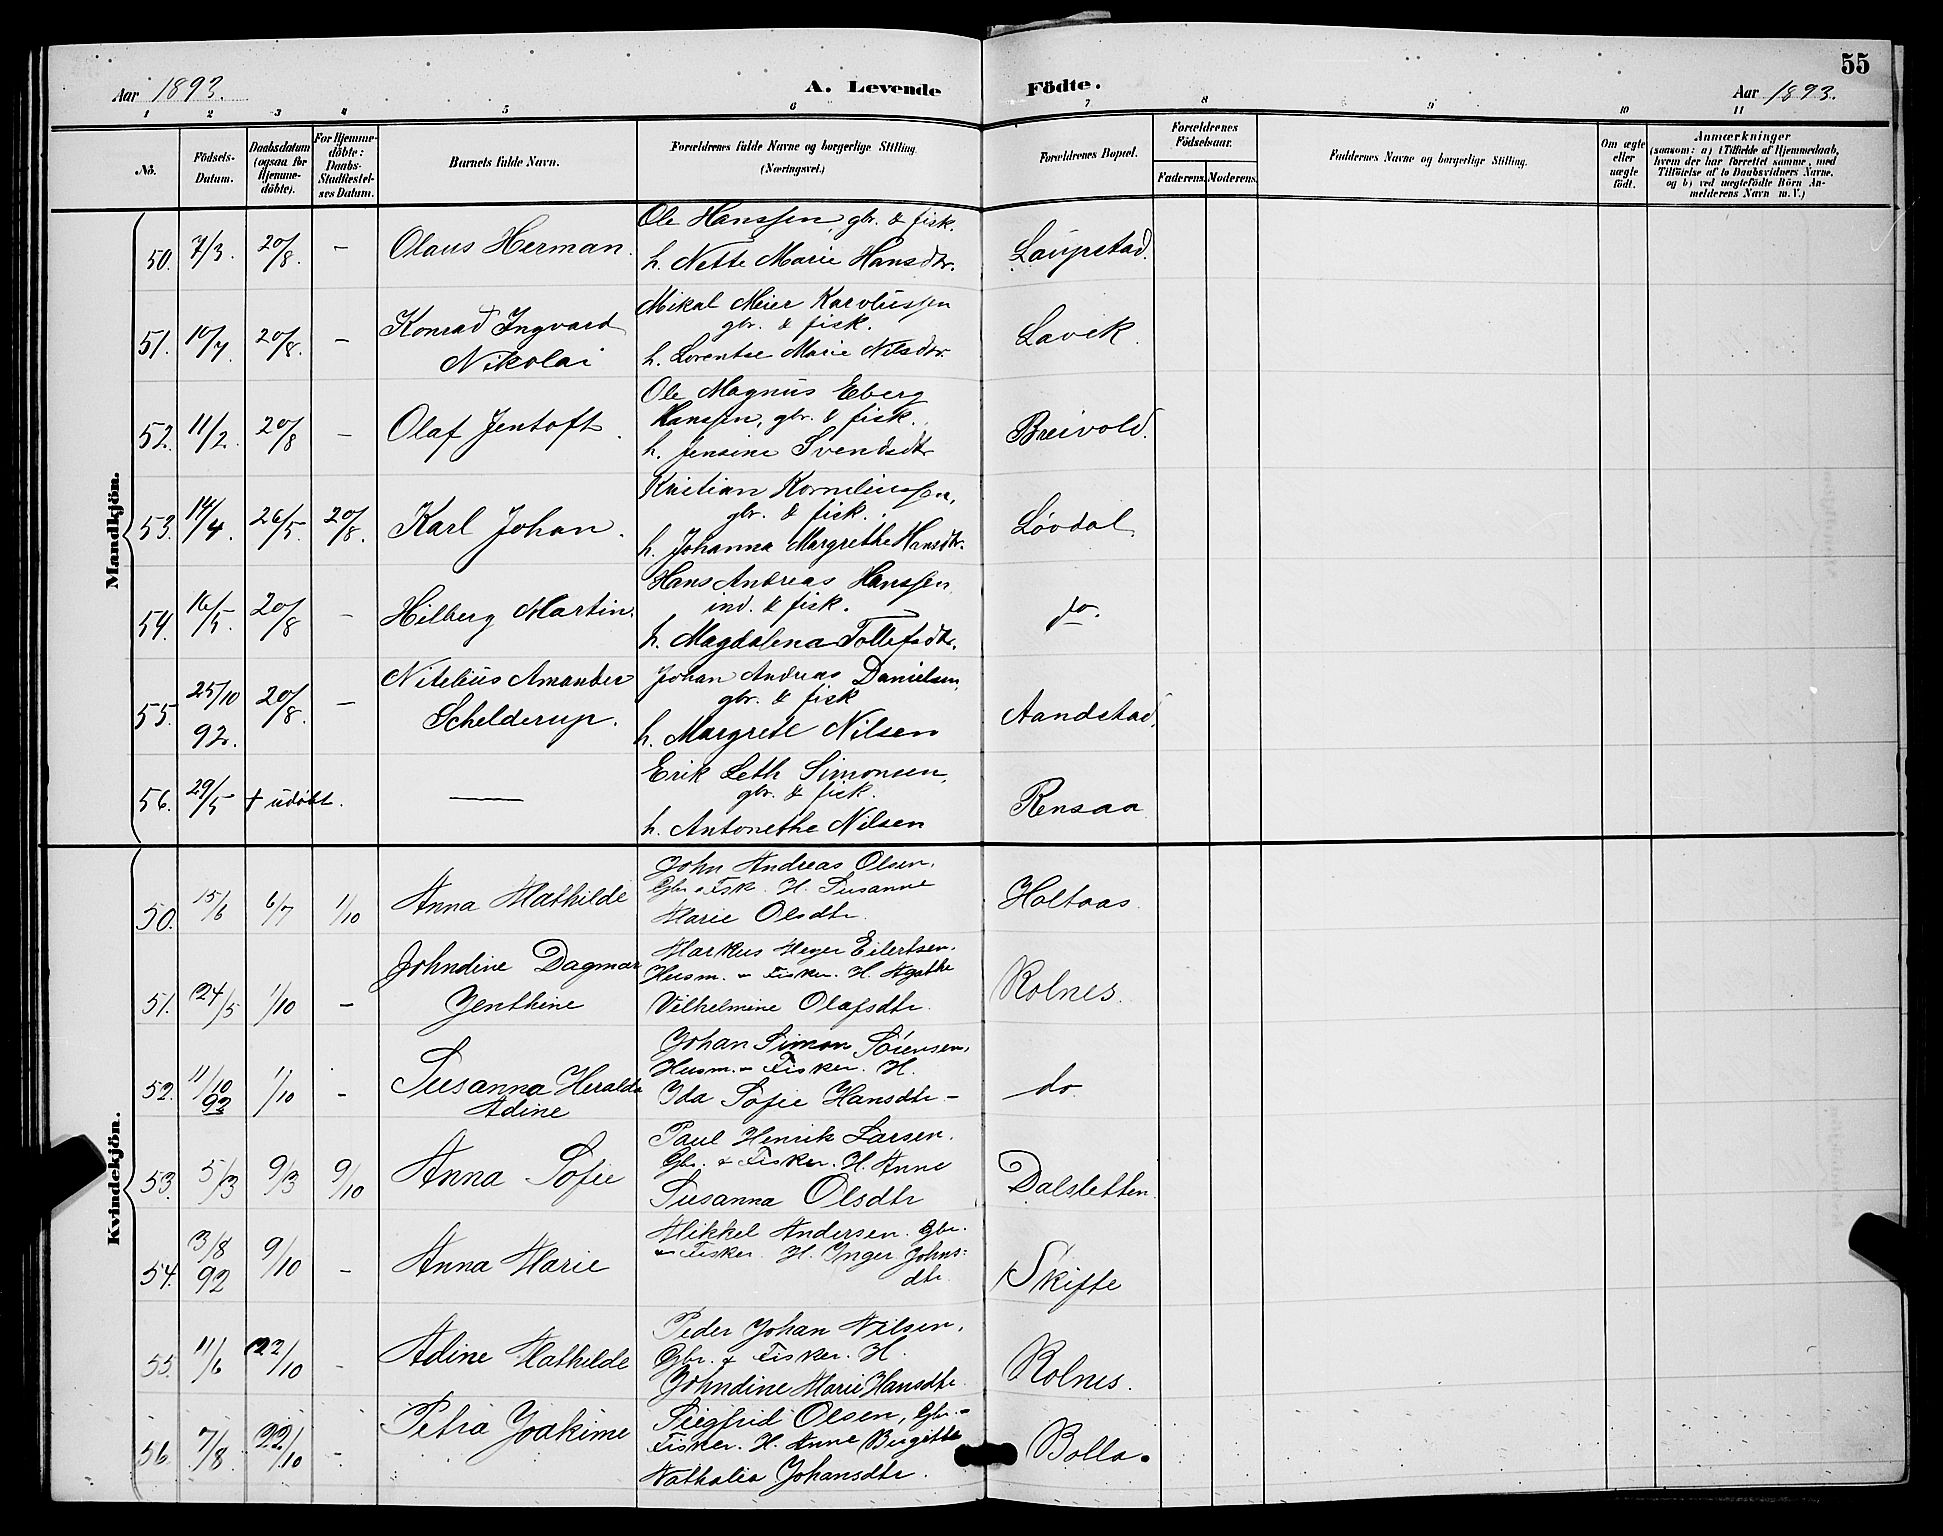 55
Aar 1893.
A. Levende
Födte.
Aar 1893.
1 2 3 4 5 6 7 8 9 10 11
No.
Födsels-
Datum.
Daabsdatum
(ogsaa for
Hjemme-
döbte).
For Hjemme-
döbte:
Daabs-
Stadfæstel-
ses Datum.
Barnets fulde Navn.
Forældrenes fulde Navne og borgerlige Stilling
(Næringsvei.)
Forældrenes Bopæl.
Forældrenes
Födselsaar.
Faderens. Moderens.
Faddernes Navne og borgerlige Stilling.
Om ægte
eller
uægte
födt.
Anmærkninger
(saasom: a) i Tilfælde af Hjemmedaab,
hvem der har forrettet samme, med
Tilföielse af to Daabsvidners Navne,
og b) ved uægtefödte Börn An-
melderens Navn m. V.)
Mandkjön.
50. 7/3. 20/8. – Olaus Herman.
Ole Hanssen, gbr. & fisk.
h. Nette Marie Hansdtr.
Laupstad.
51. 10/7. 20/8. – Konrad Ingvard
Nikolai
Mikal Meier Karolussen
gbr. & fisk.
h. Lorentse Marie Nilsdtr.
Lavik.
52. 11/2. 20/8 – Olaf Jentoft.
Ole Magnus Eberg
Hanssen, gbr. & fisk.
h. Jensine Svendsdtr
Breivold.
53. 14/4. 26/5. 20/8. Karl Johan.
Kristian Korneliussen,
gbr. & fisk.
h. Johanna Margrethe Hansdtr.
Løvdal
54. 16/5. 20/8 – Hilberg Martin.
Hans Andreas Hanssen
ind. & fisk.
h. Magdalena Tollefsdtr.
do.
55. 25/10 92. 20/8. – Nitelius Amander
Schelderup.
Johan Andreas Danielsen,
gbr. & fisk
h. Margrete Nilsen
Aandstad.
56. 29/5 + udöbt. —
Erik Leth Simonsen,
gbr. & fisk.
h. Antonethe Nilsen
Rensaa
Kvindekjön.
50. 15/6 6/7 1/10 Anna Mathilde
John Andreas Olsen.
Gbr. & Fisk. H. Susanne
Marie Olsdtr.
Holtaas.
51. 24/5 1/10 – Johndine Dagmar
Jenthine
Markus Meyer Eilertsen.
Husm. & Fisker. H. Agathe
Vilhelmine Olafsdtr.
Rolnes.
52. 11/10 92 1/10 – Susanna Heralda
Adine
Johan Simon Sörensen,
Husm. & Fisker. H.
Ida Sofie Hansdtr –
do
53. 5/3 9/3 9/10 Anna Sofie
Paul Henrik Larsen.
Gbr. & Fisker. H. Anne
Susanna Olsdtr
Dalsletten.
54. 3/8 92 9/10 – Anna Marie
Mikkel Andersen. Gbr.
& Fisker. H. Inger Johns-
dtr.
Skifte
55. 11/6 22/10 – Adine Mathilde
Peder Johan Nilsen,
Gbr. & Fisker. H.
Johndine Marie Hansdtr.
Rolnes.
56. 7/8. 22/10 – Petra Joakime
Siegfrid Olsen, Gbr. &
Fisker. H. Anne Birgitte
Nathalia Johansdtr.
Bolla.